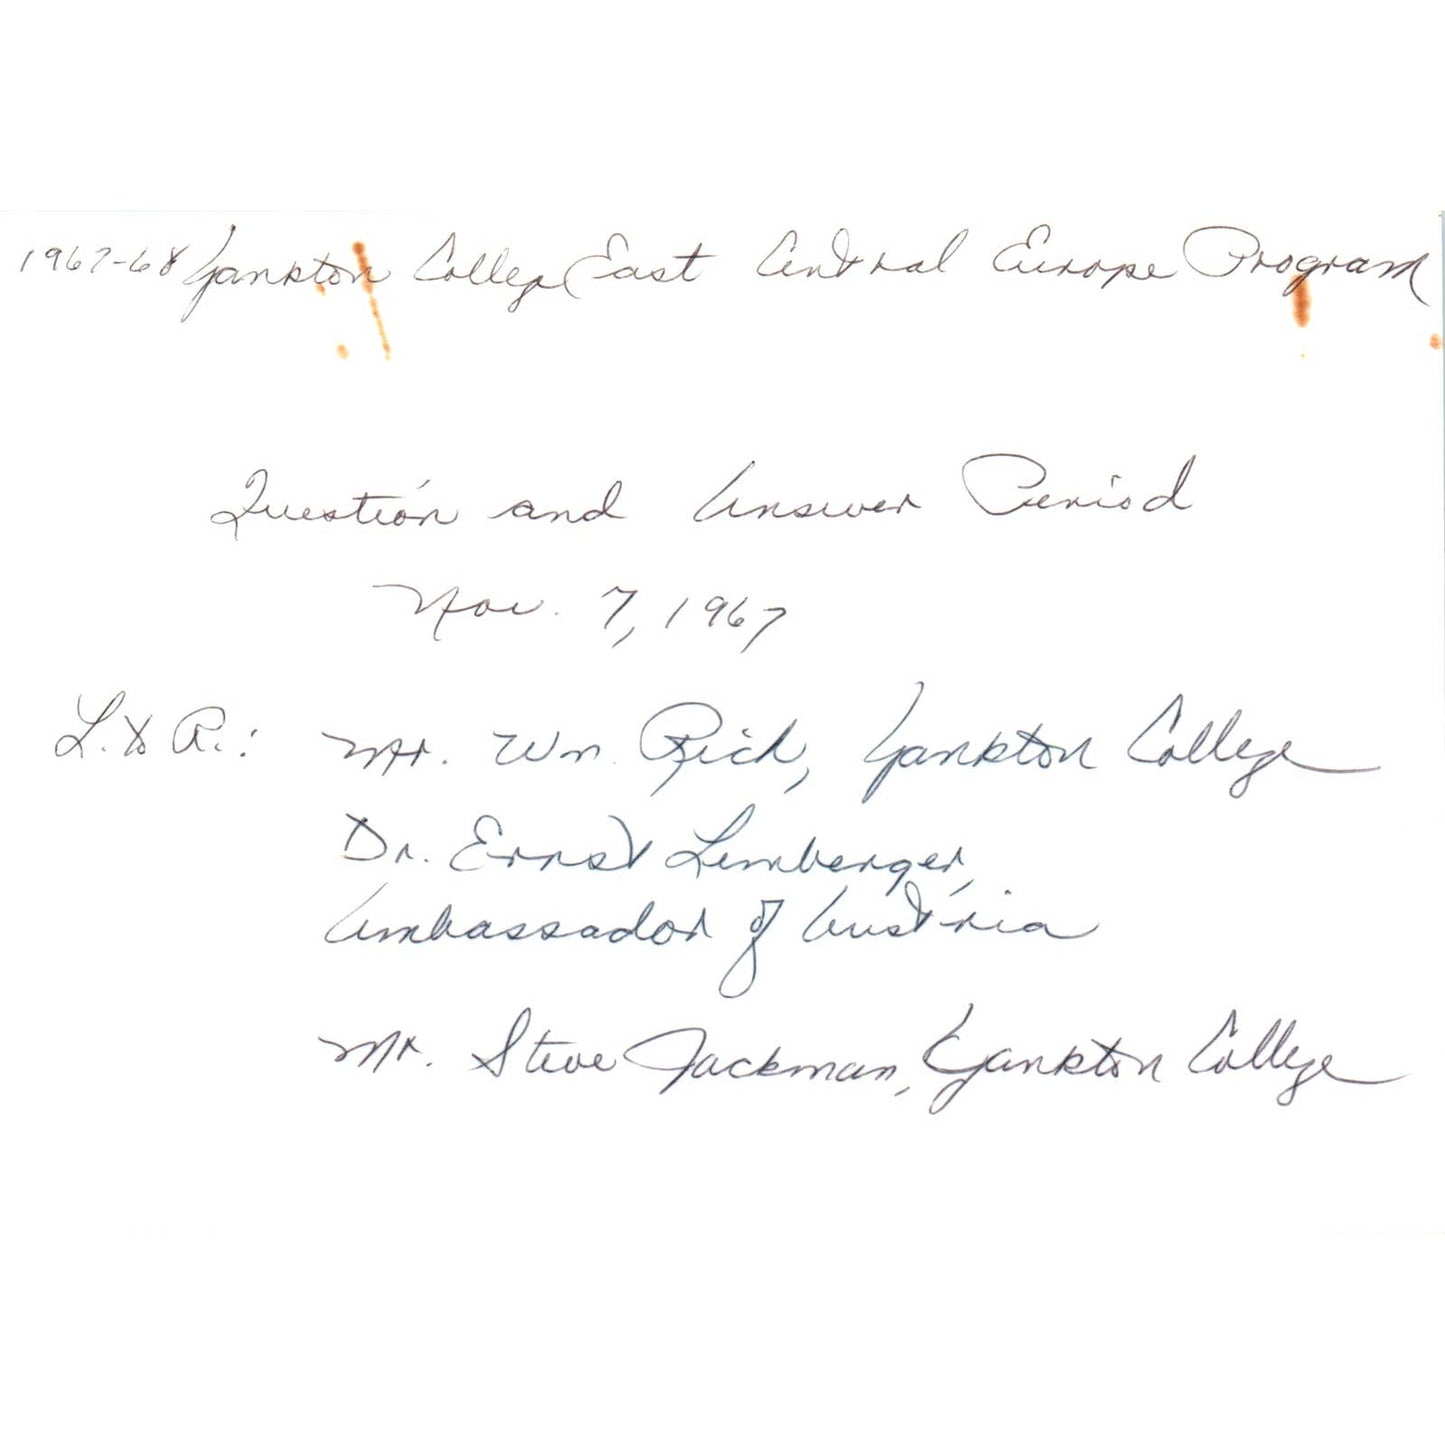 1967-68 Yankton College East Central Europe Program
Question and Answer Period
Nov. 7, 1967
L. to R.: Mr. Wm. Rich, Yankton College
Dr. Ernst Lemberger,
Ambassador of Austria
Mr. Steve Jackman, Yankton College